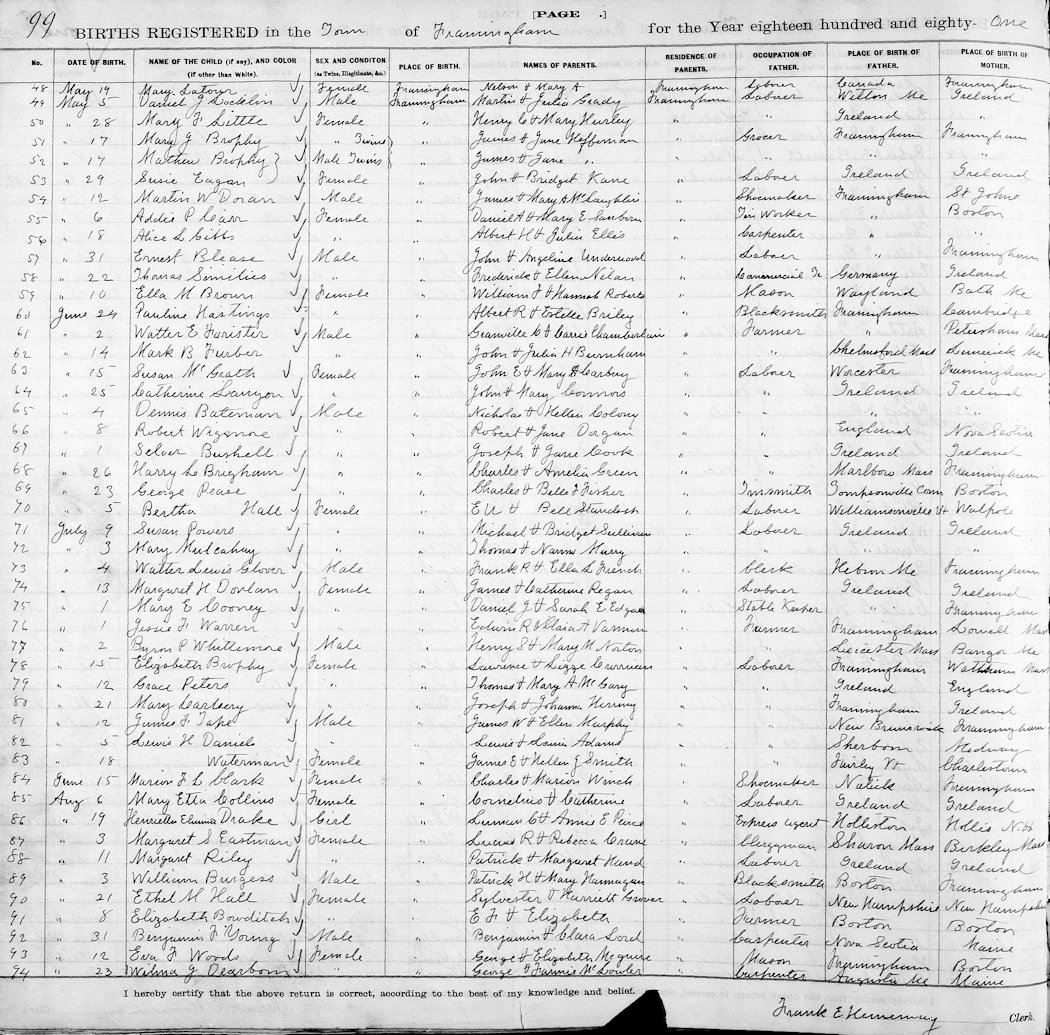 99 [PAGE .]
BIRTHS REGISTERED in the Town of Framingham for the Year eighteen hundred and eighty- One
No. DATE OF BIRTH. NAME OF THE CHILD (if any), AND COLOR (if other than White). SEX AND CONDITON (as Twins, Illegitimate, &c.) PLACE OF BIRTH. NAMES OF PARENTS. RESIDENCE OF PARENTS. OCCUPATION OF FATHER. PLACE OF BIRTH OF FATHER. PLACE OF BIRTH OF MOTHER.
48 May 19 Mary Latour Female Framingham Nelson & Mary A Framingham Laborer Canada Framingham
49 May 5 Daniel J Locklin Male Framingham Martin & Julia Grady Framingham Laborer Witton Me Ireland
50 " 28 Mary F Little Female " Henry C & Mary Hurley " " Ireland "
51 " 17 Mary J Brophy " Twins " James & Jane Heffernan " Grocer Framingham Framingham
52 " 17 Mathew Brophy Male Twins " James & Jane " " " "
53 " 29 Susie Eagan Female " John & Bridget Kane " Laborer Ireland Ireland
54 " 12 Martin W Doran Male " James & Mary A McLaughlin " Shoemaker Framingham St Johns
55 " 6 Addie P Carr Female " Daniel A & Mary E Sanborn " Tin Worker " Boston
56 " 18 Alice L Gibbs " " Albert H & Julia Ellis " Carpenter " "
57 " 31 Ernest Blease Male " John & Angeline Underwood " Laborer " Framingham
58 " 22 Thomas " " Frederick & Ellen Nilan " Commercial Tr Germany Ireland
59 " 10 Ella M Brown Female " William F & Hannah Roberts " Mason Wayland Bath Me
60 June 24 Pauline Hastings " " Albert R & Estelle Briley " Blacksmith Framingham Cambridge
61 " 2 Walter E Forister Male " Granville C & Carrie Chamberlain " Farmer " Petersham Mass
62 " 14 Mark B Furber " " John & Julia H Burnham " " Chelmsford Mass Limerick Me
63 " 15 Susan McGrath Female " John E & Mary A Carbery " Laborer Worcester Framingham
64 " 25 Catherine Lanyon " " John & Mary Connors " " Ireland Ireland
65 " 4 Dennis Bateman Male " Nicholas & Hellen Colony " " " "
66 " 8 Robert Wigmore " " Robert & Jane Dorgan " " England Nova Scotia
67 " 1 Bushell " " Joseph & Jane Cook " " Ireland Ireland
68 " 26 Harry L Brigham " " Charles & Amelia Green " " Marlboro Mass Framingham
69 " 23 George Pease " " Charles & Belle F Fisher " Tinsmith Tompsonville Conn Boston
70 " 5 Bertha Hall Female " Eli & Bell Standish " Laborer Williamsville Vt Walpole
71 July 9 Susan Powers " " Michael & Bridget Sullivan " Laborer Ireland Ireland
72 " 3 Mary Mulcahay " " Thomas & Nanna Mary " " " "
73 " 4 Walter Lewis Glover Male " Frank R & Ella L French " Clerk Hebron Me Framingham
74 " 13 Margaret H Dovlan Female " James & Catherine Regan " Laborer Ireland Ireland
75 " 1 Mary E Cooney " " Daniel J & Sarah E Edgar " Stable Keeper " " Framingham
76 " 1 Jessie F Warren " " Edwin R & Maria H Varnum " Farmer Framingham Lowell Mass
77 " 2 Byron P Whittemore Male " Henry S & Mary M Norton " " Leicester Mass Bangor Me
78 " 15 Elizabeth Brophy Female " Lawrence & Lizze " Laborer Framingham Mass
79 " 12 Grace Peters " " Thomas & Mary A McGary " " Ireland England
80 " 21 Mary Carbery " " Joseph & Johanna " " Framingham Ireland
81 " 12 James F Tape Male " James W & Ellen Murphy " " New Brunswick Framingham
82 " 5 Lewis H Daniels " " Lewis & Louisa Adams " " Sherborn Medway
83 " 18 Waterman Female " James E & Hellen J Smith " " Fairley Vt Charlestown
84 June 15 Marion F L Clark Female " Charles & Marion Winch " Shoemaker Natick Framingham
85 Aug 6 Mary Etta Collins Female " Cornelius & Catherine " Laborer Ireland Ireland
86 " 19 Henrietta Drake Girl " Luman C & Annie E Pierce " Express Agent Holliston Hollis N H
87 " 3 Margaret S Eastman Female " Lucius R & Rebecca Crane " Clergyman Sharon Mass Berkley Mass
88 " 11 Margaret Riley " " Patrick & Margaret Hand " Laborer Ireland Ireland
89 " 3 William Burgess Male " Patrick H & Mary " Blacksmith Boston Framingham
90 " 21 Ethel M Hall Female " Sylvester & Harriett Grover " Laborer New Hampshire New Hampshire
91 " 8 Elizabeth Bowditch " " E F & Elizabeth " Farmer Boston Boston
92 " 31 Benjamin F Young Male " Benjamin & Clara Lord " Carpenter Nova Scotia Maine
93 " 12 Eva F Woods Female " George & Elizabeth McGuire " Mason Framingham Boston
94 " 23 Wilma J Dearborn " " George & Fannie McLowler " Carpenter Augusta Me Maine
I hereby certify that the above return is correct, according to the best of my knowledge and belief.
Frank E Hemenway Clerk.